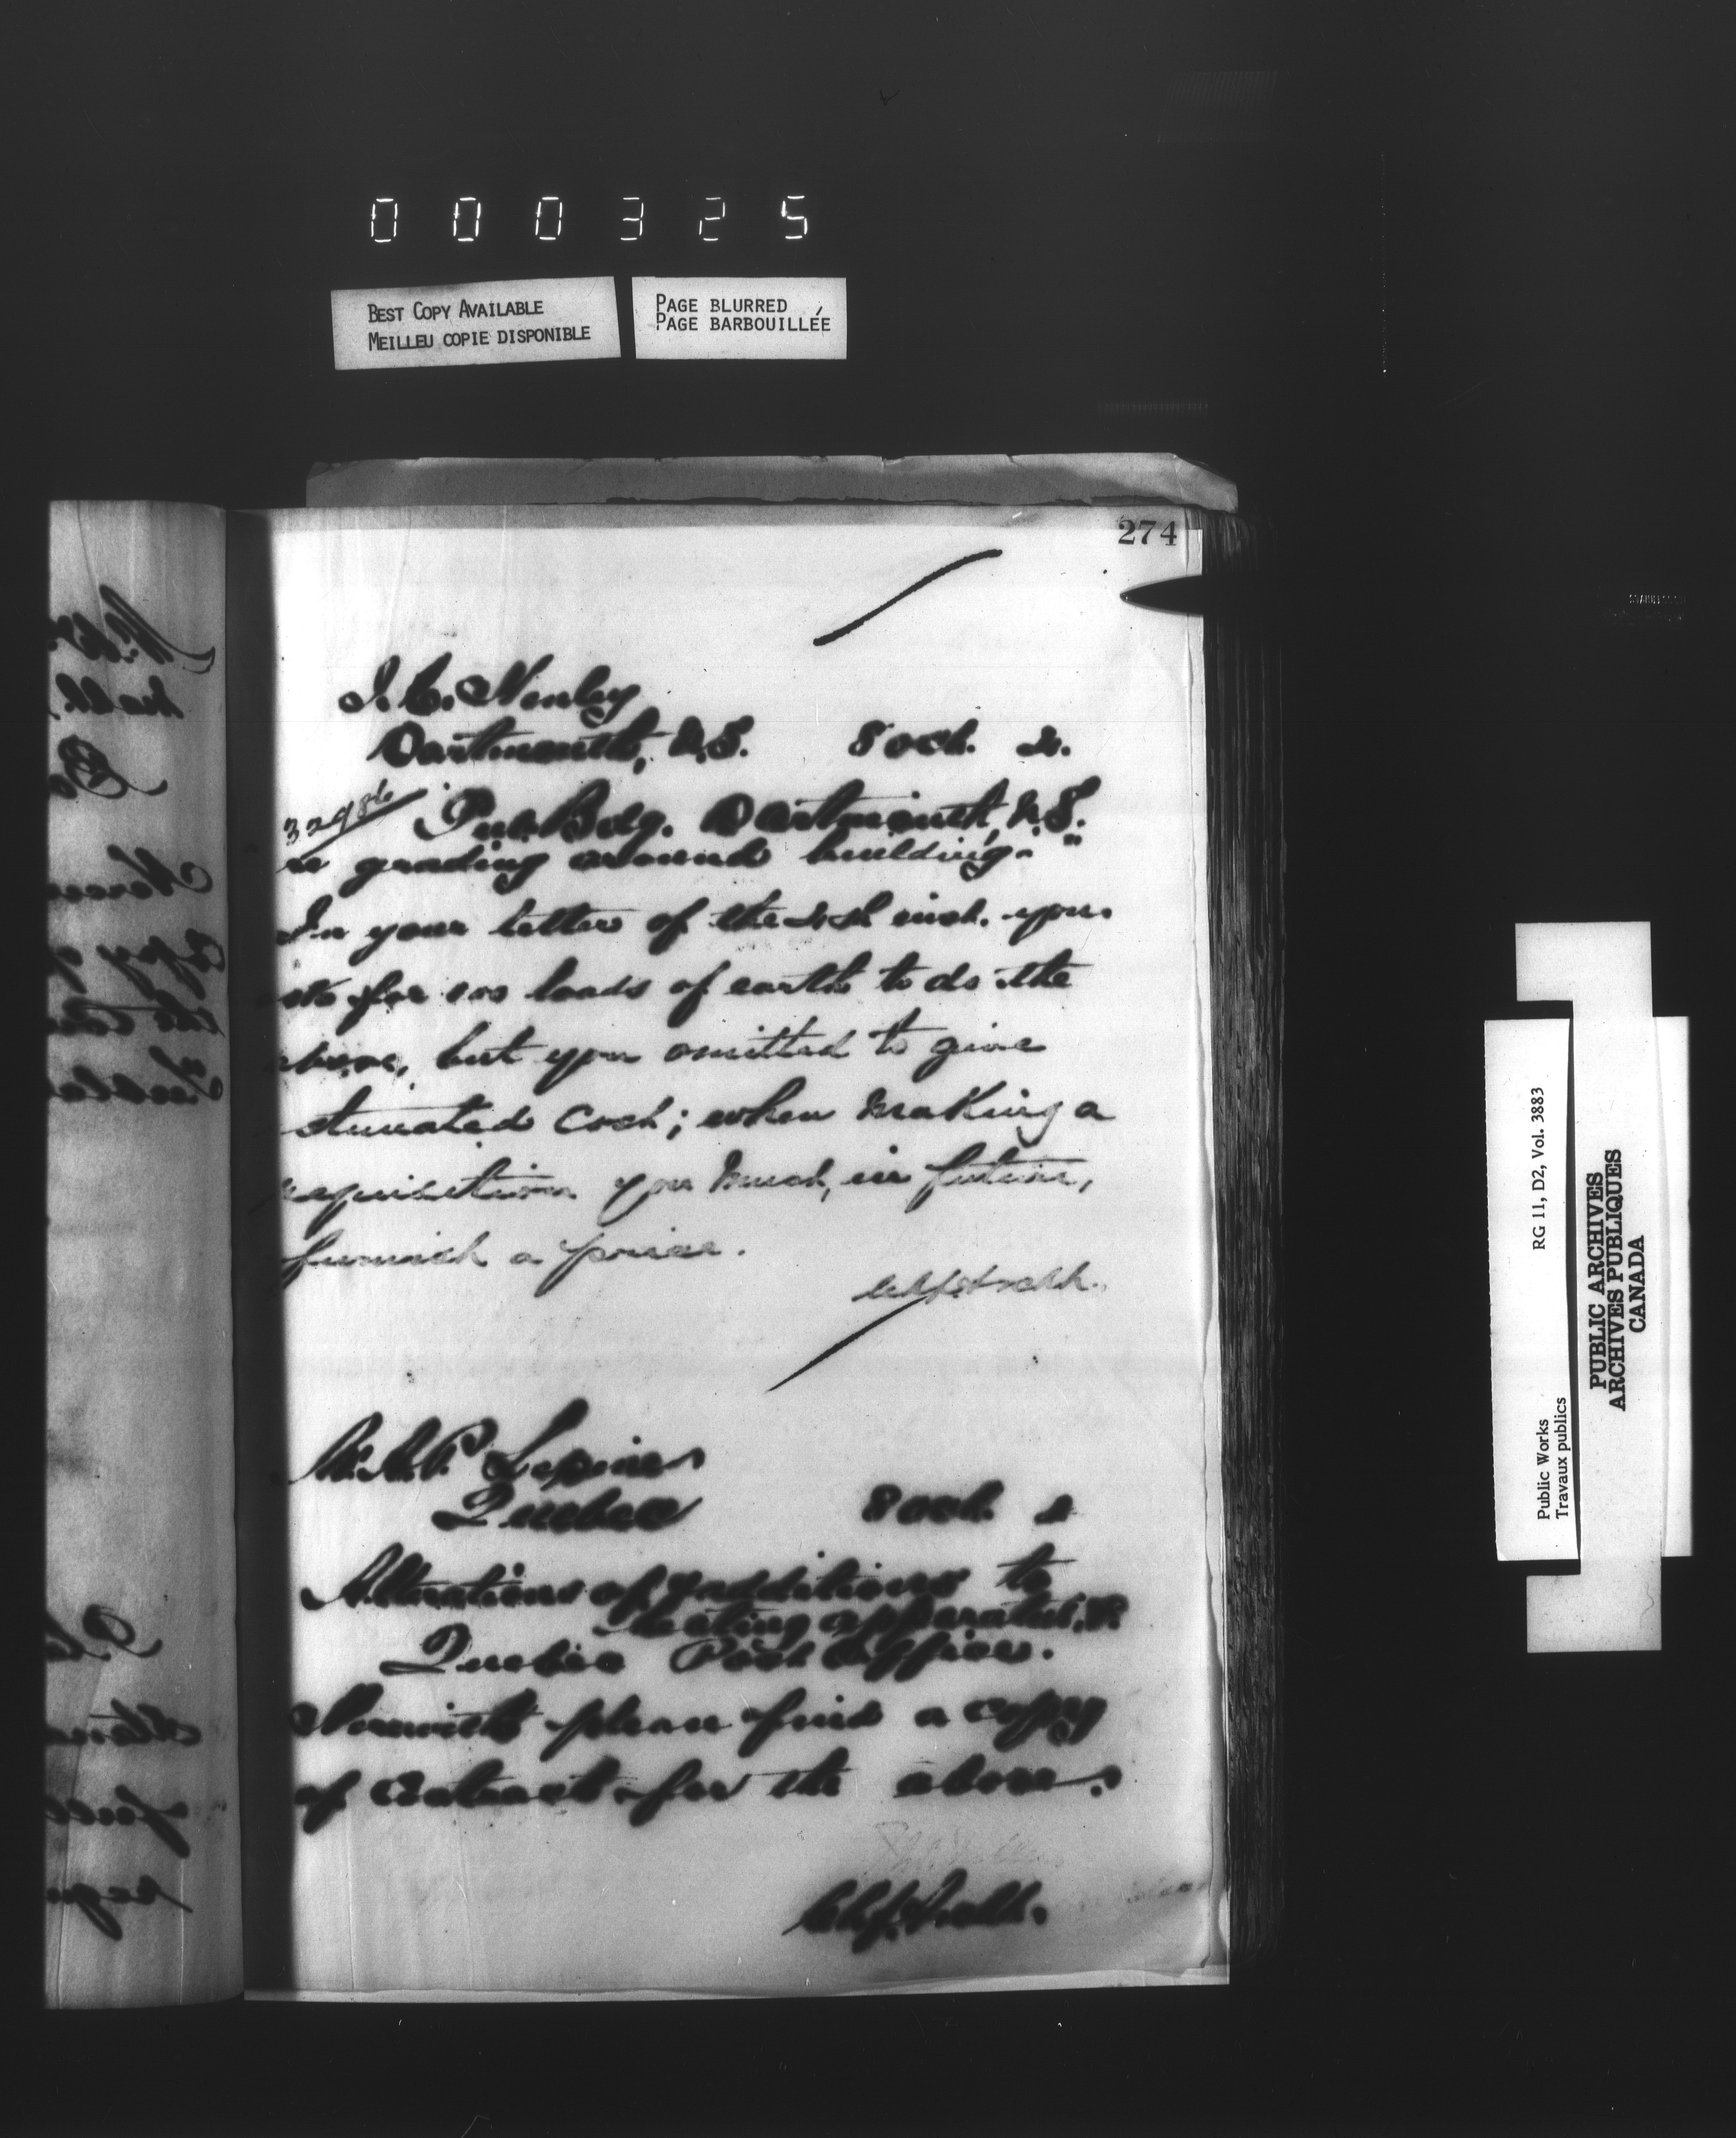 000325
BEST COPY AVAILABLE
MEILLEU COPIE DISPONIBLE
PAGE BLURRED
PAGE BARBOUILLÉE
274
Dartmouth, N.S. 8 Oct. 2.
Pub. Bdg. Dartmouth, N.S.
re grading around building."
In your letter of the inst. you
for 100 loads of earth to do the
above, but you omitted to give
estimated cost; when making a
requisition you must, in future,
furnish a price.
Chf. Archt.
Lepine
Quebec 8 Oct. 2
Alterations of & additions to
heating apparatus, &c.
Quebec Post Office.
Herewith please find a copy
of contract for the above.
Chf. Archt.
Public Works
Travaux publics
RG 11, D2, Vol. 3883
PUBLIC ARCHIVES
ARCHIVES PUBLIQUES
CANADA